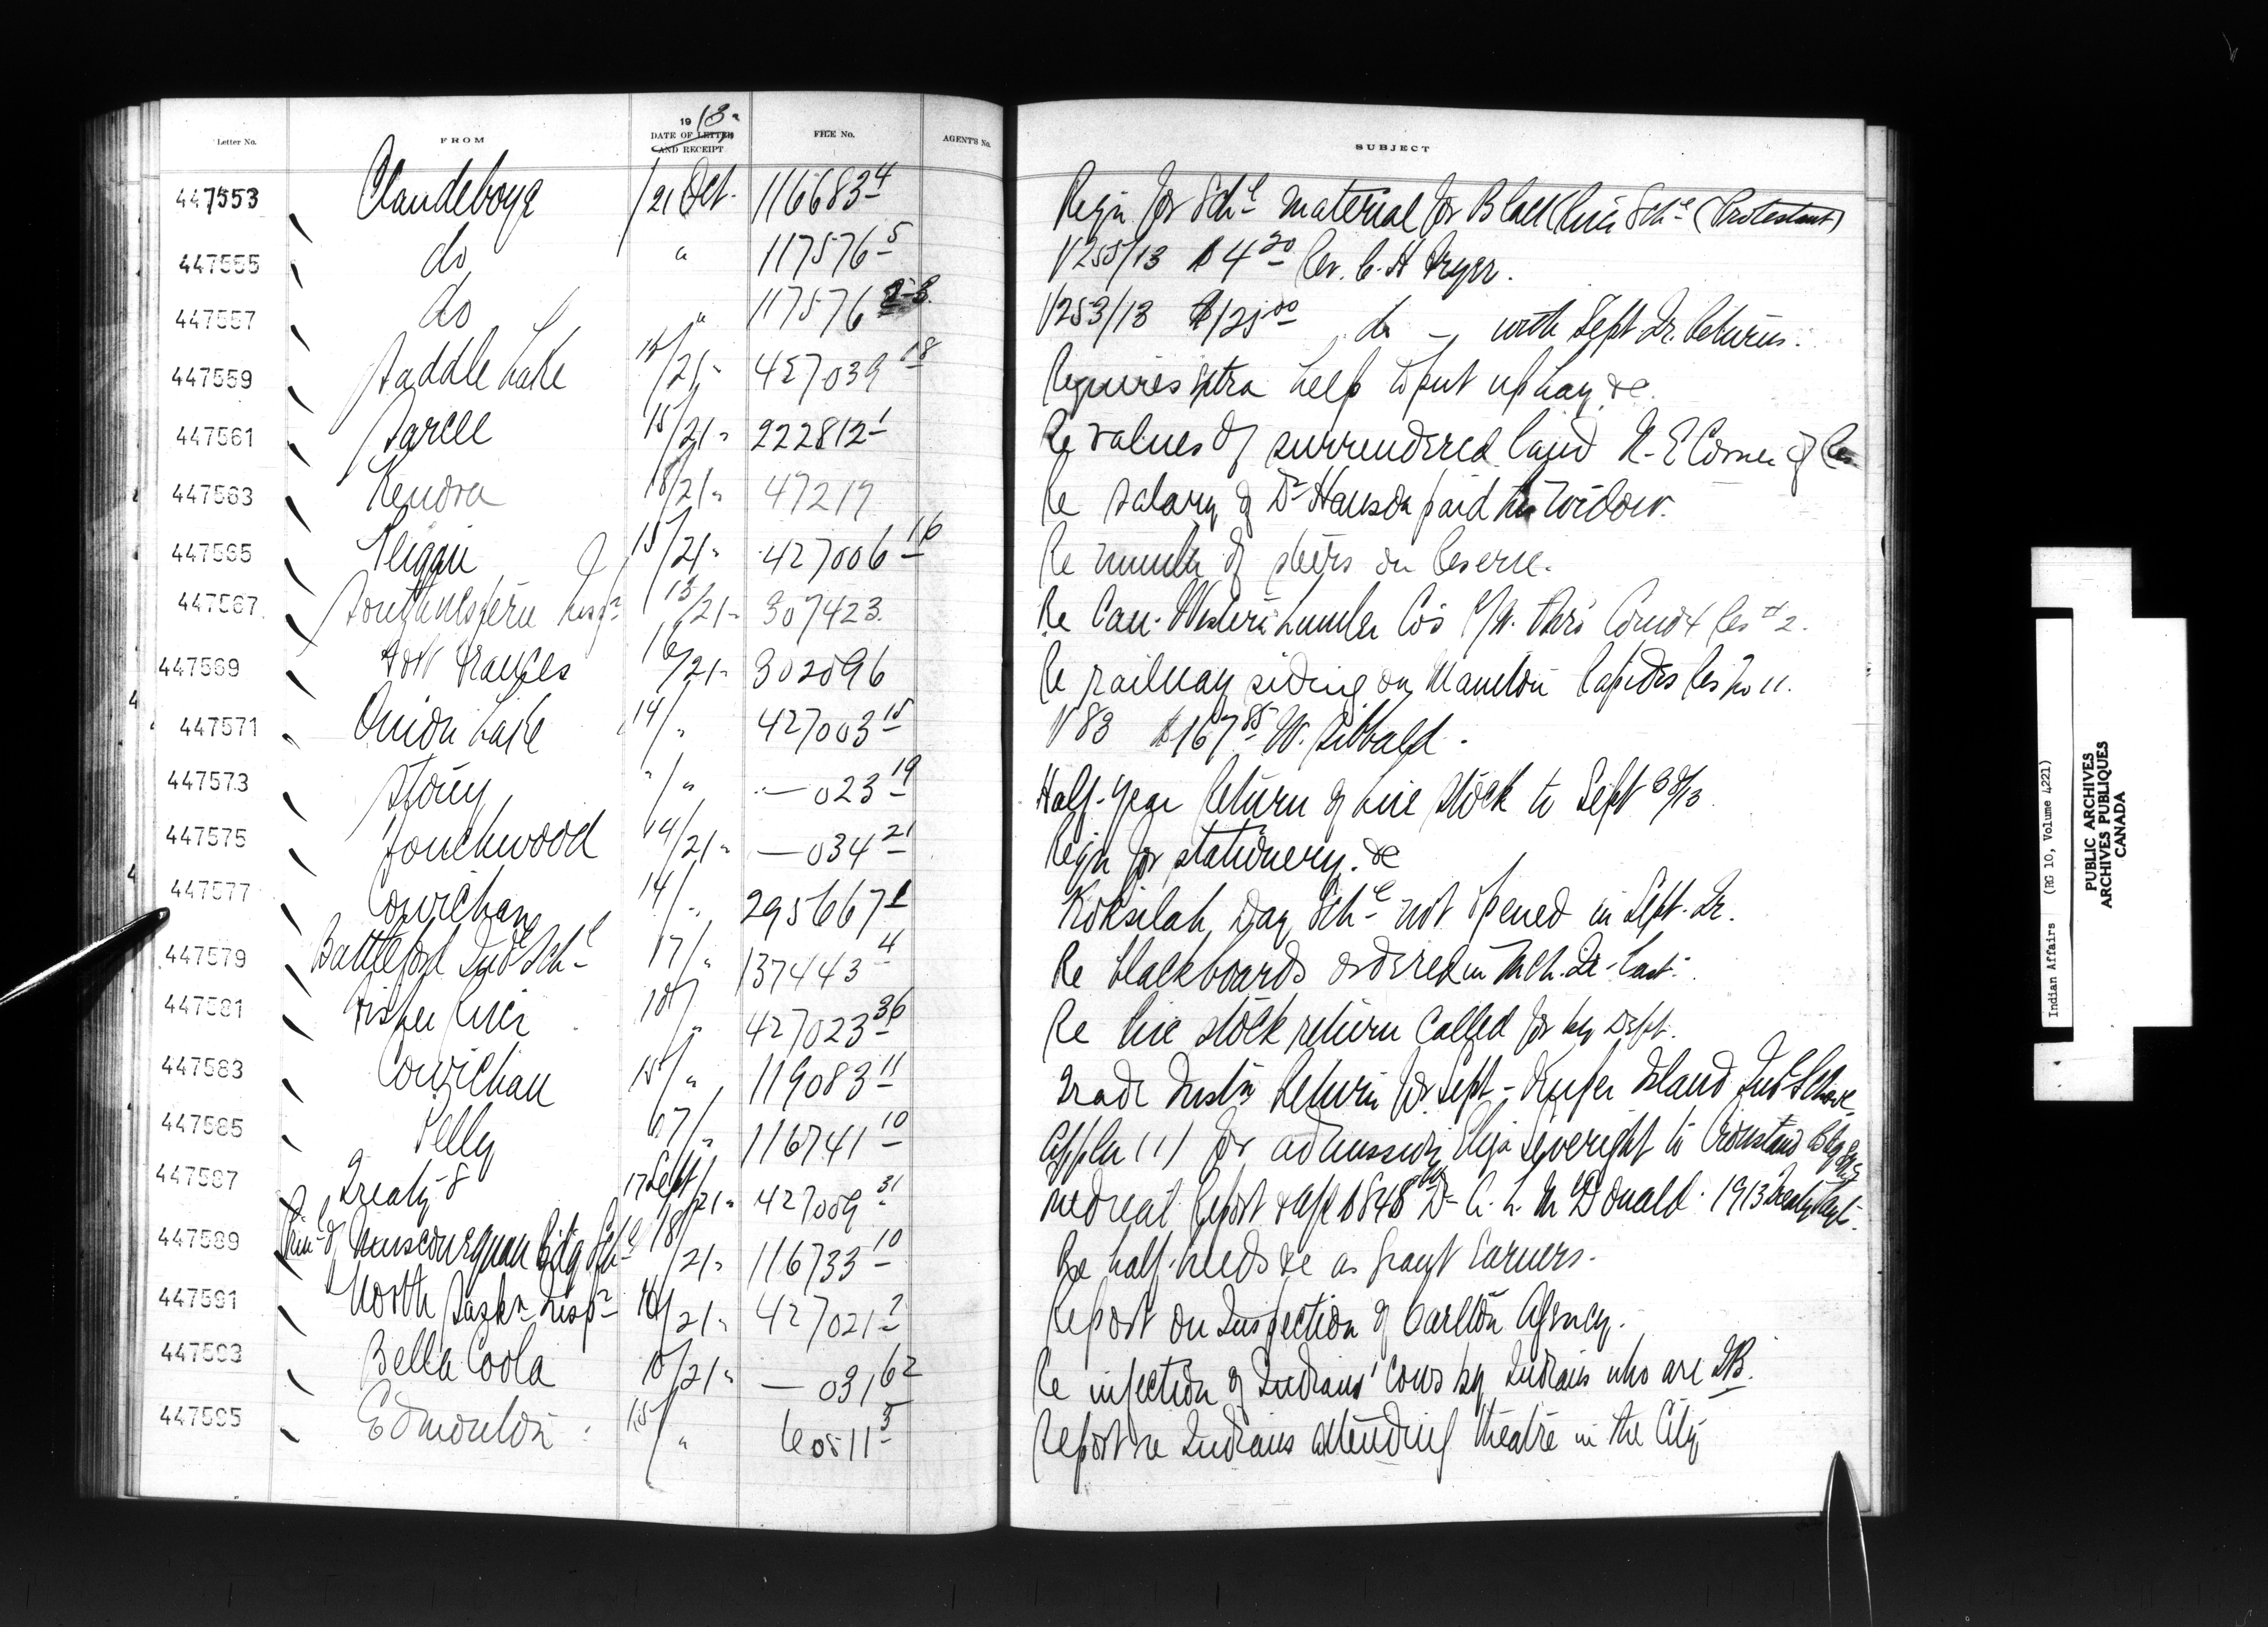 Letter No. FROM 1913. DATE OF LETTER AND RECEIPT FILE No. AGENT'S No. SUBJECT
447553 Clandeboye /21 Oct. 116683 4 Reqn for Schl material for Black River Schl (Protestant)
447555 do " 117576 5 V 255/13 $4 20 Rev. C. H. Fryer.
447557 do " 117576 V 253/13 $125 00 do – with Sept Qr. Returns.
447559 Saddle Lake 14/21 " 427039 18 Requires extra help to put up hay &c.
447561 Sarcee 15/21 " 222812 1 Re values of surrendered land N-E Corner of Res
447563 Kenora 18/21 " 47217 Re salary of Dr Hanson paid his widow.
447565 Peigan 15/21 " 427006 16 Re number of steers on Reserve.
447567 Southwestern Inspr 13/21 " 307423 Re Can. Western Lumber Co's R/W. thro' Comox Res # 2.
447569 Fort Frances 16/21 " 302096 Re railway siding on Manitou Rapids Res No 11.
447571 Onion Lake 14/ " 427003 15 V 83 $167 85 W. Sibbald.
447573 Stony "/ " — 023 19 Half-year Return of live stock to Sept 30/13
447575 Touchwood 14/21 " — 034 21 Reqn for stationery &c
447577 Cowichan 14/ " 295667 1 Koksilah Day Schl not opened in Sept. Qr.
447579 Battleford Indl Schl 17/ " 137443 4 Re blackboards ordered in Mch. Qr. last.
447581 Fisher River 18/ " 427023 36 Re live stock return called for by Dept.
447583 Cowichan 15/ " 119083 11 Trade Instn Return for Sept – Kuper Island Indl School
447585 Pelly / " 116741 10 Appln (1) for admission Severight to Crowstand Bdg Sch
447587 Treaty 8 17 Sept/21 " 427009 31 Medical Report & a/c $848 Dr A. L. McDonald. 1913 Treaty Payt.
447589 Prin. of Muscowequan Bdg Schl 18/21 " 116733 10 Re half-breeds &c as grant earners.
447591 North Saskn Inspr 16/21 " 427021 2 Report on Inspection of Carlton Agency.
447593 Bella Coola 10/21 " — 031 62 Re infection of Indians' cows by Indians who are TB.
447595 Edmonton 15/ " 60511 5 Report re Indians attending theatre in the City
Indian Affairs (RG 10, Volume 4221)
PUBLIC ARCHIVES
ARCHIVES PUBLIQUES
CANADA